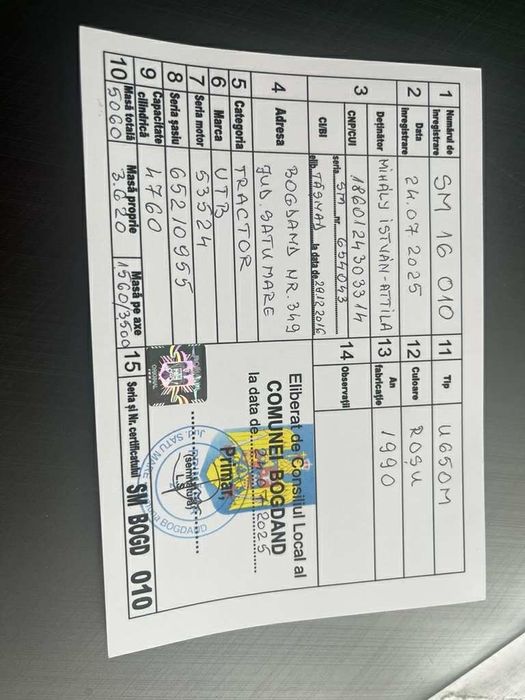 1 Numărul de înregistrare SM 16 010
2 Data înregistrare 24.07.2025
3 Deținător MIHÁLY ISTVÁN-ATTILA
CNP/CUI 1860124303314
CI/BI seria SM nr 654043
elib. TĂȘNAD la data de 29.12.2016
4 Adresa BOGDAND NR. 349
JUD. SATU MARE
5 Categoria TRACTOR
6 Marca UTB
7 Seria motor 53524
8 Seria șasiu 65210955
9 Capacitate cilindrică 4760
10 Masă totală 5060 Masă proprie 3.620 Masă pe axe 1560/3500
11 Tip U650M
12 Culoare ROȘU
13 An fabricație 1990
14 Observații
Eliberat de Consiliul Local al
COMUNEI BOGDAND
la data de 24.07.2025
Primar,
(semnătura)
SATU MARE
BOGDAND
15 Seria și Nr. certificatului SM BOGD 010